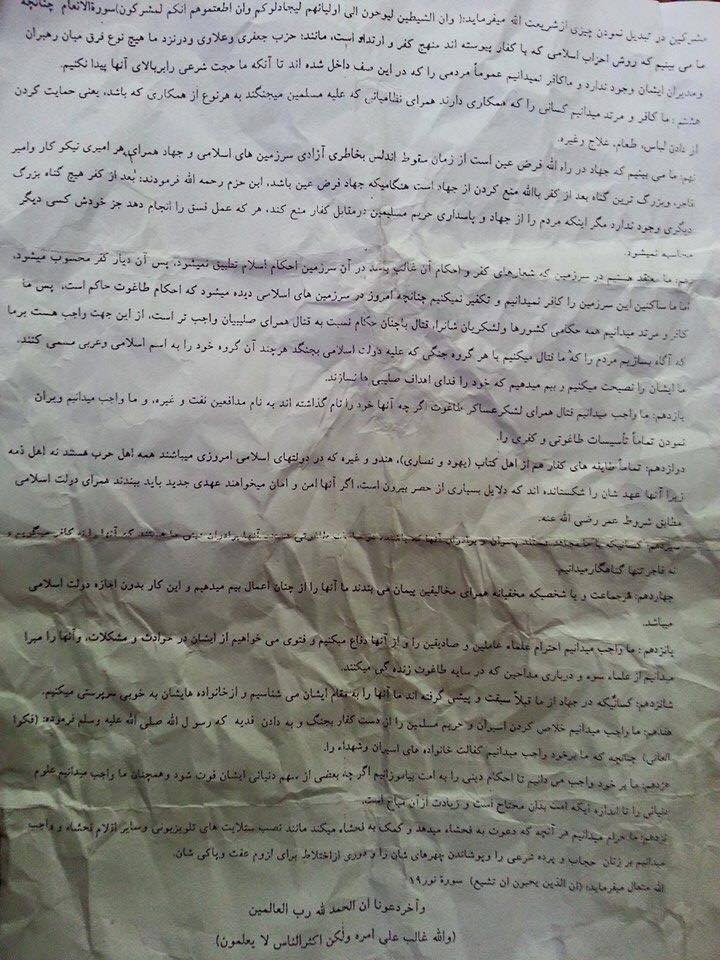 مشرکین در تبدیل نمودن چیزی ازشریعت الله میفرماید:( وان الشیطین لیوحون الی اولیائهم لیجادلوکم وان اطعتموهم انکم لمشرکون)سورةالانعام چنانچه
ما می بینیم که روش احزاب اسلامی که با کفار پیوسته اند منهج کفر و ارتداد است، مانند: حزب جعفری وعلاوی ودرنزد ما هیچ نوع فرق میان رهبران
ومدیران ایشان وجود ندارد و ماکافر نمیدانیم عموماً مردمی را که در این صف داخل شده اند تا آنکه ما حجت شرعی رابربالای آنها پیدا نکنیم.
هشتم : ما کافر و مرتد میدانیم کسانی را که همکاری دارند همرای نظامیانی که علیه مسلمین میجنگند به هرنوع از همکاری که باشد، یعنی حمایت کردن
از دادن لباس، طعام، علاج وغیره.
نهم: ما می بینیم که جهاد در راه الله فرض عین است از زمان سقوط اندلس بخاطری آزادی سرزمین های اسلامی و جهاد همرای هر امیری نیکو کار وامیر
فاجر، وبزرگ ترین گناه بعد از کفر باالله منع کردن از جهاد است هنگامیکه جهاد فرض عین باشد، ابن حزم رحمه الله فرمودند: بعد از کفر هیچ گناه بزرگ
دیگری وجود ندارد مگر اینکه مردم را از جهاد و پاسداری حریم مسلیمین درمقابل کفار منع کند، هر که عمل فسق را انجام دهد جز خودش کسی دیگر
محاسبه نمیشود.
دهم: ما معتقد هستیم در سرزمین که شعار های کفر و احکام آن غالب باشد در آن سرزمین احکام اسلام تطبیق نمیشود، پس آن دیار کفر محسوب میشود،
اما ما ساکنین این سرزمین را کافر نمیدانیم و تکفیر نمیکنیم چنانچه امروز در سرزمین های اسلامی دیده میشود که احکام طاغوت حاکم است، پس ما
کافر و مرتد میدانیم همه حکامی کشورها ولشکریان شانرا، قتال باچنان حکام نسبت به قتال همرای صلیبیان واجب تر است، از این جهت واجب هست برما
که آگاه بسازیم مردم را که ما قتال میکنیم با هر گروه جنگی که علیه دولت اسلامی بجنگد هرچند آن گروه خود را به اسم اسلامی وعربی مسمی کنند.
ما ایشان را نصیحت میکنیم و بیم میدهیم که خود را فدای اهداف صلیبی ها نسازند.
یازدهم: ما واجب میدانیم قتال همرای لشکرعساکر طاغوت اگر چه آنها خود را نام گذاشته اند به نام مدافعین نفت و غیره، و ما واجب میدانیم ویران
نمودن تماماً تأسیسات طاغوتی و کفری را.
دوازدهم: تماماً طایفه های کفار هم از اهل کتاب (یهود و نصاری)، هندو و غیره که در دولتهای اسلامی امروزی میباشند همه اهل حرب هستند نه اهل ذمه
زیرا آنها عهد شان را شکستانده اند که دلایل بسیاری از حصر بیرون است، اگر آنها امن و امان میخواهند عهدی جدید باید ببندند همرای دولت اسلامی
مطابق شروط عمر رضی الله عنه.
سیزدهم: کسانیکه
نه فاجر تنها گناهگارمیدانیم.
چهاردهم: هرجماعت و یا شخصیکه مخفیانه همرای مخالیفین پیمان می بندند ما آنها را از چنان اعمال بیم میدهیم و این کار بدون اجازه دولت اسلامی
میباشد.
پانزدهم: ما واجب میدانیم احترام علماء عاملین و صادیقین را و از آنها دفاع میکنیم و فتوی می خواهیم از ایشان در حوادث و مشکلات، وآنها را مبرا
میدانیم از علماء سوء و درباری مداحین که در سایه طاغوت زنده گی میکنند.
شانزدهم: کسانیکه در جهاد از ما قبلاً سبقت و پیشی گرفته اند ما آنها را به مقام ایشان می شناسیم و ازخانواده هایشان به خوبی سرپرستی میکنیم.
هفدهم: ما واجب میدانیم خلاص کردن اسیران و حریم مسلمین را از دست کفار بجنگ و به دادن فدیه که رسو ل الله صلی الله علیه وسلم فرموده: (فکوا
العانی) چنانچه که ما برخود واجب میدانیم کفالت خانواده های اسیران وشهداء را.
هژدهم: ما بر خود واجب می دانیم تا احکام دینی را به امت بیاموزانیم اگر چه بعضی از سهم دنیائی ایشان فوت شود وهمچنان ما واجب میدانیم علوم
دنیائی را تا اندازه ایکه امت بدان محتاج است و زیادت ازآن مباح است.
نزدهم: ما حرام میدانیم هر آنچه که دعوت به فحشاء میدهد و کمک به فحشاء میکند مانند نصب ستلایت های تلویزیونی وسایر اقلام فحشاء و واجب
میدانیم بر زنان حجاب و پرده شرعی را وپوشاندن چهرهای شان را و دوری ازاختلاط برای لزوم عفت وپاکی شان.
الله متعال میفرماید: (ان الذین یحبون ان تشیع) سورة نور۱۹
وآخردعونا ان الحمد لله رب العالمین
(والله غالب علی امره ولکن اکثرالناس لا یعلمون)